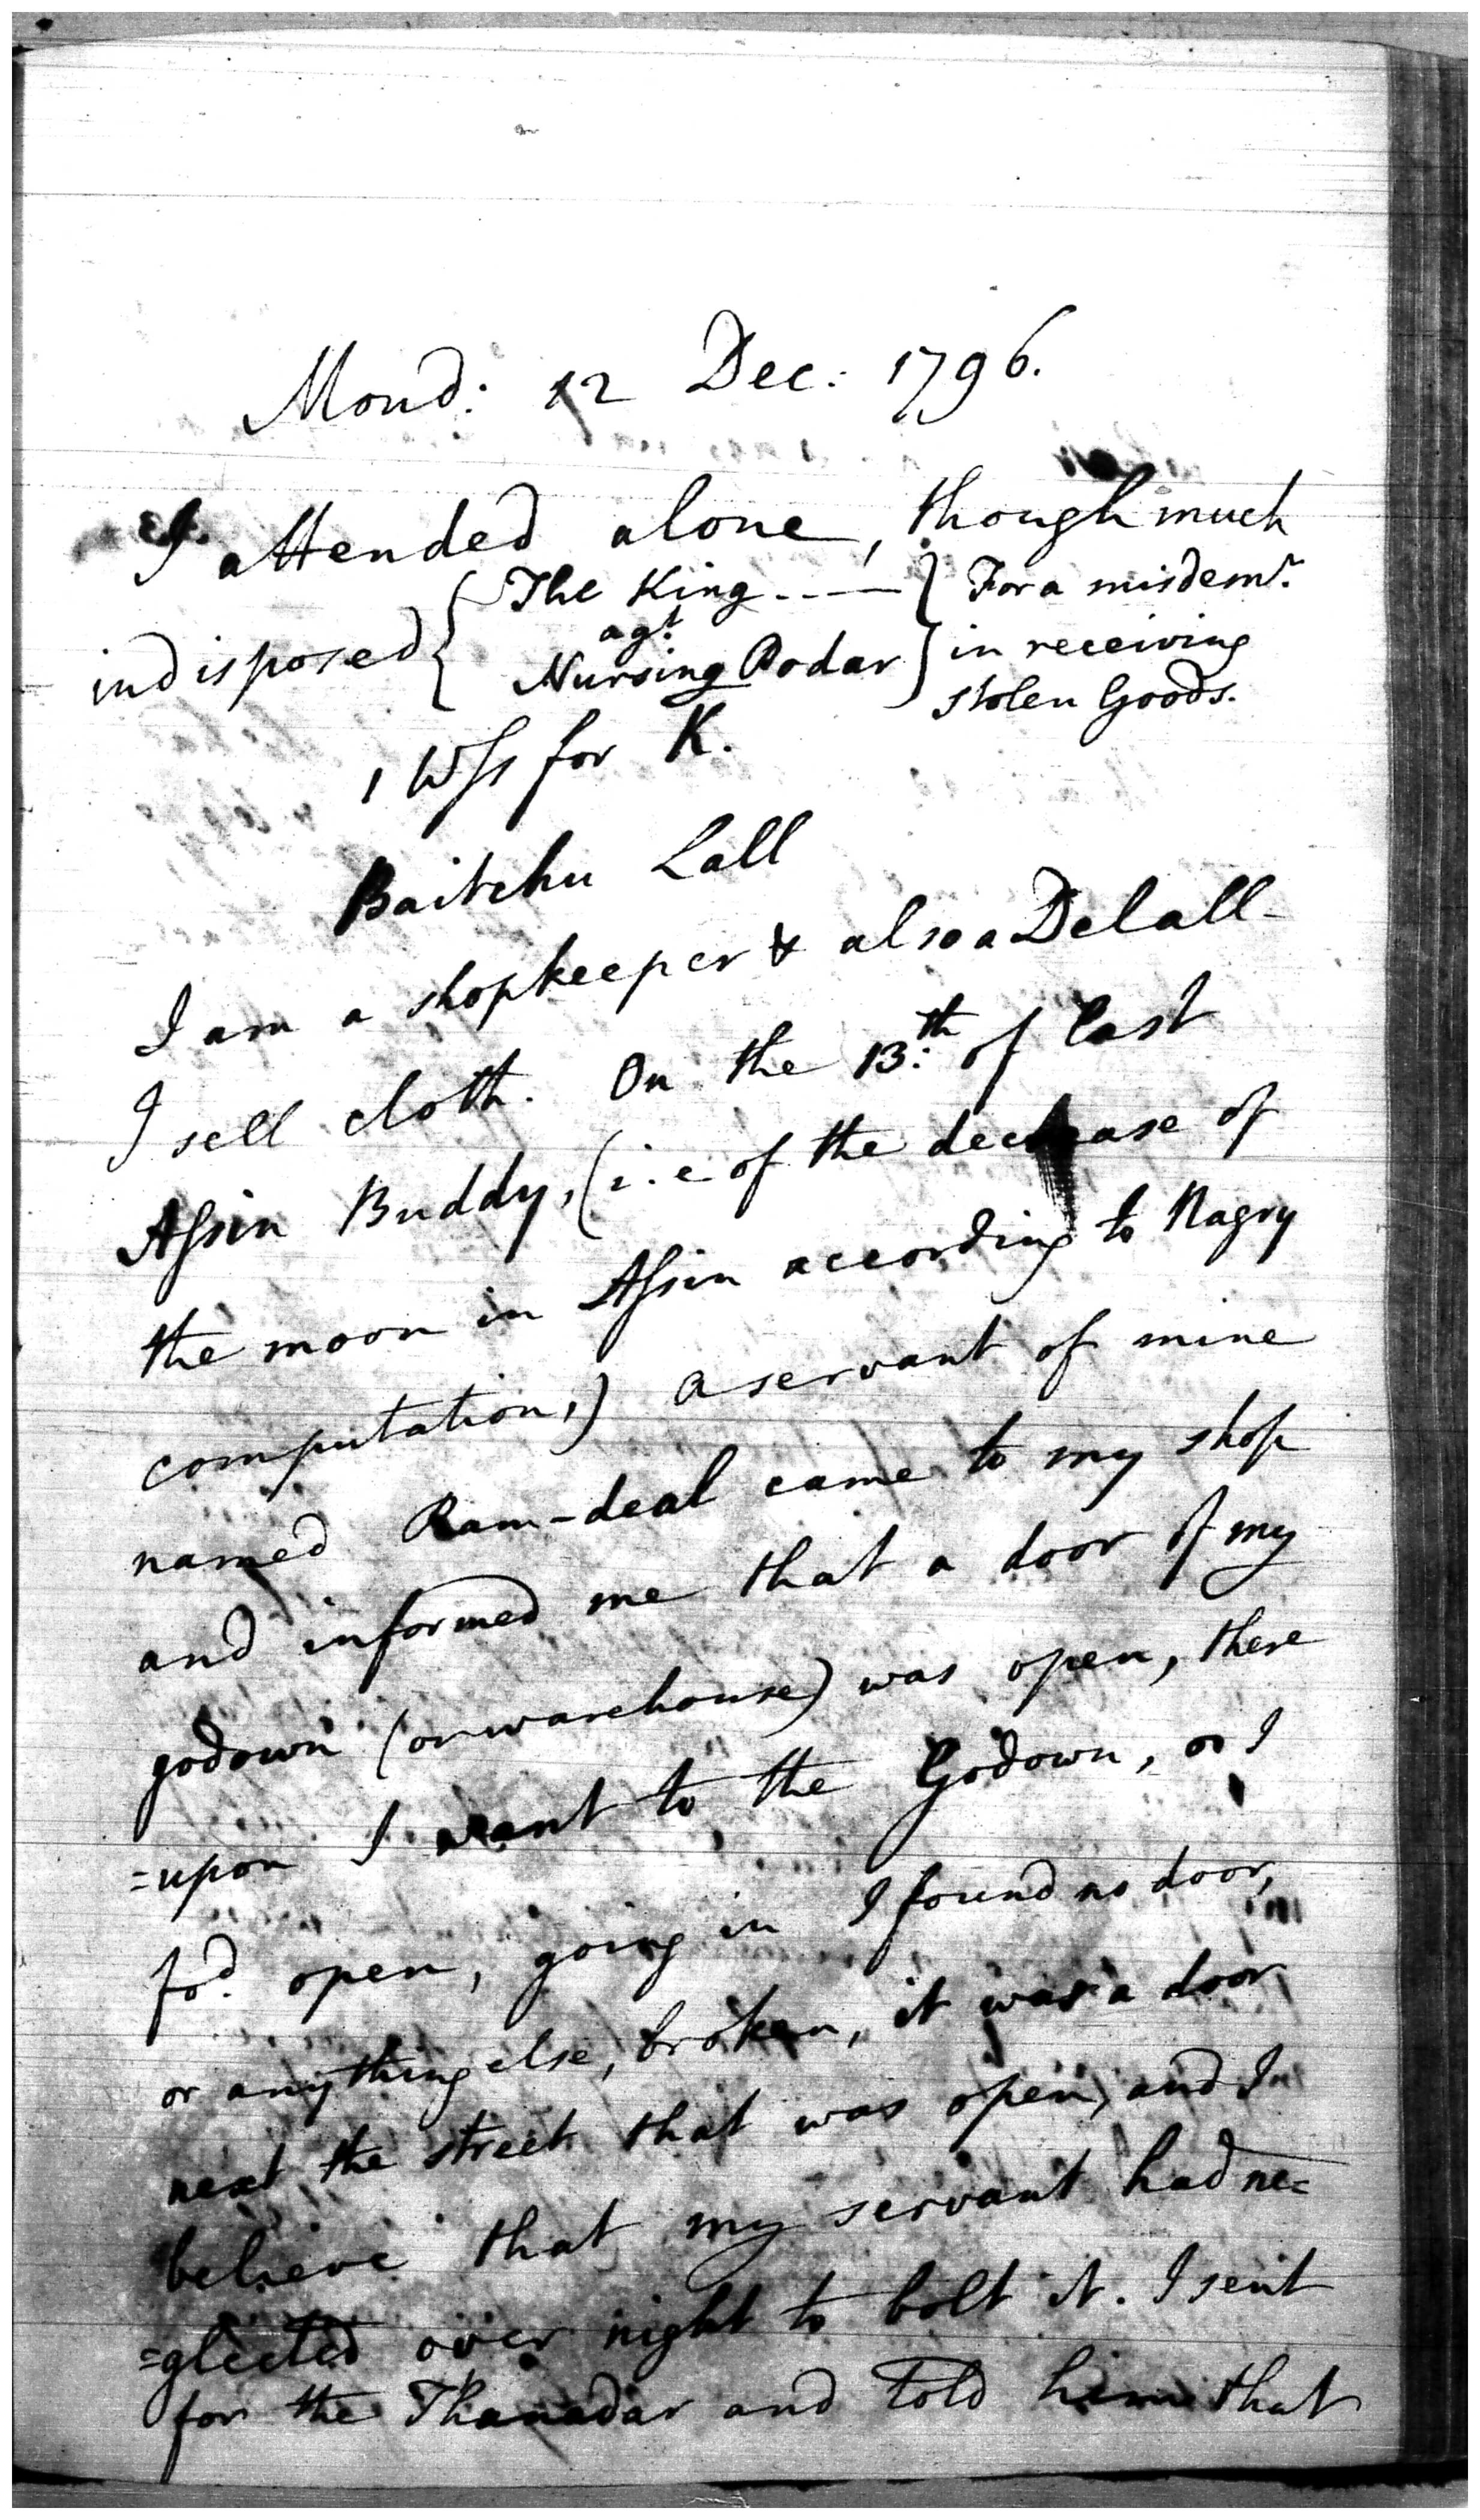 Mond: 12 Dec: 1796.
I attended alone, though much
indisposed { The King ---- } For a misdemr.
agt. in receiving
Nursing Podar stolen Goods.
1 Wss for K.
Baitchu Lall
I am a shopkeeper & also a Delall-
I sell cloth. On the 13th. of last
Assin Buddy, (i.e of the decrease of
the moon in Assin according to Nagry
computation,) a servant of mine
named Ram-deal came to my shop
and informed me that a door of my
godown (or warehouse) was open, there
=upon I went to the Godown, as I
fod. open, going in I found no door,
or any thing else, broken, it was a door
next the street that was open, and I
believe that my servant had ne=
=glected over night to bolt it. I sent
for the Thanadar and told him that